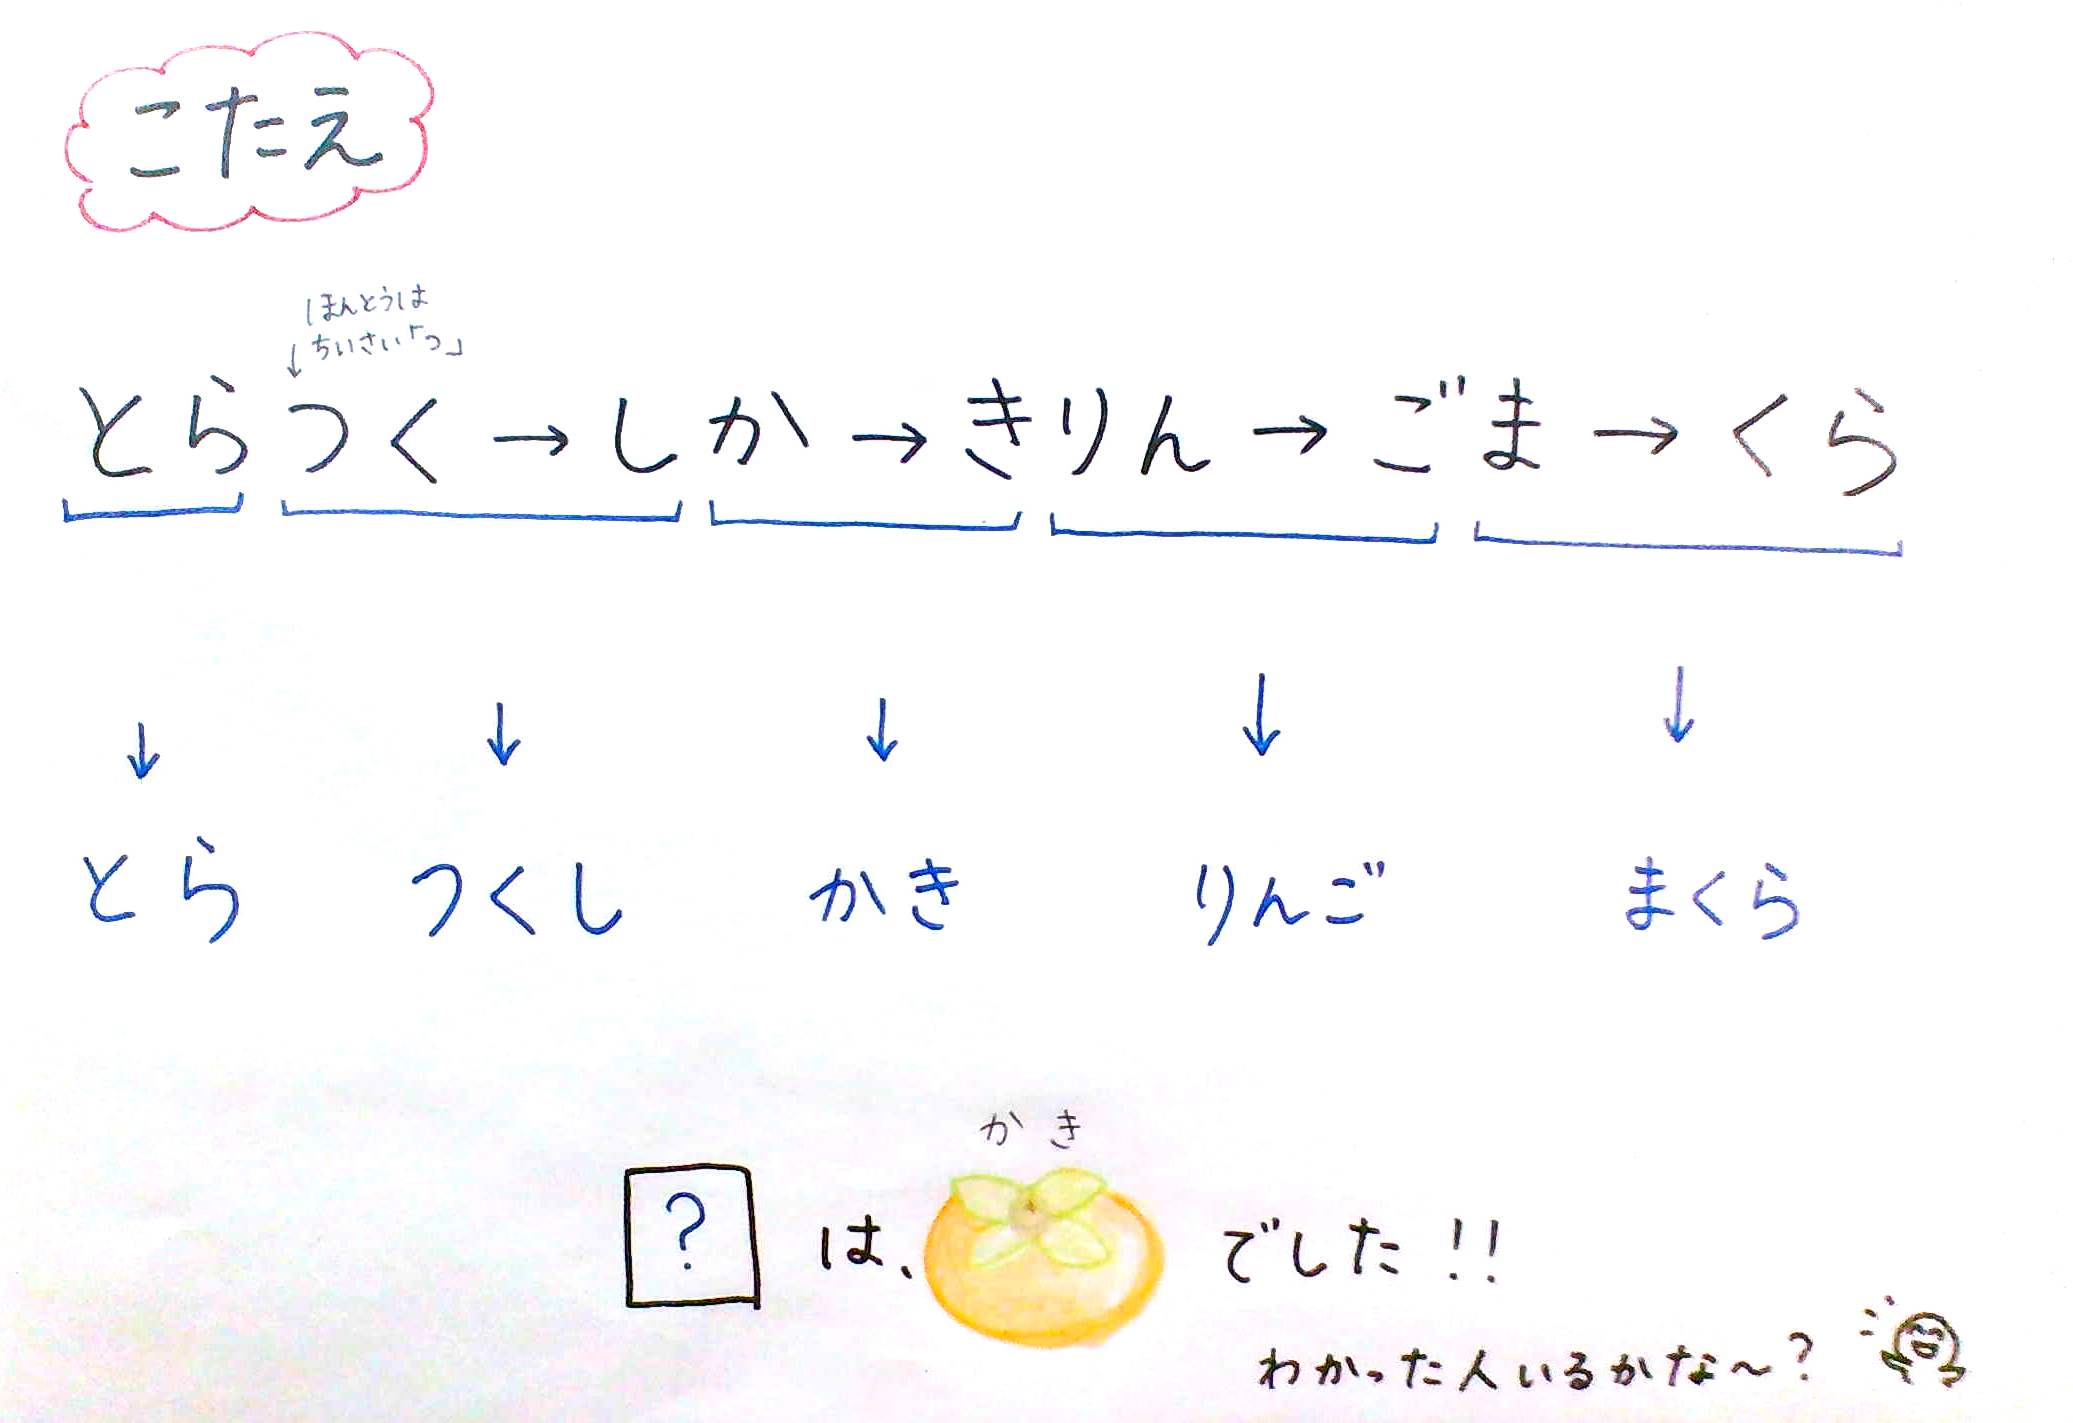 こたえ
ほんとうは
↓ちいさい「つ」
とらつく→しか→きりん→ごま→くら
↓ ↓ ↓ ↓ ↓
とら つくし かき りんご まくら
かき
? は、 でした!!
わかった人いるかな~?